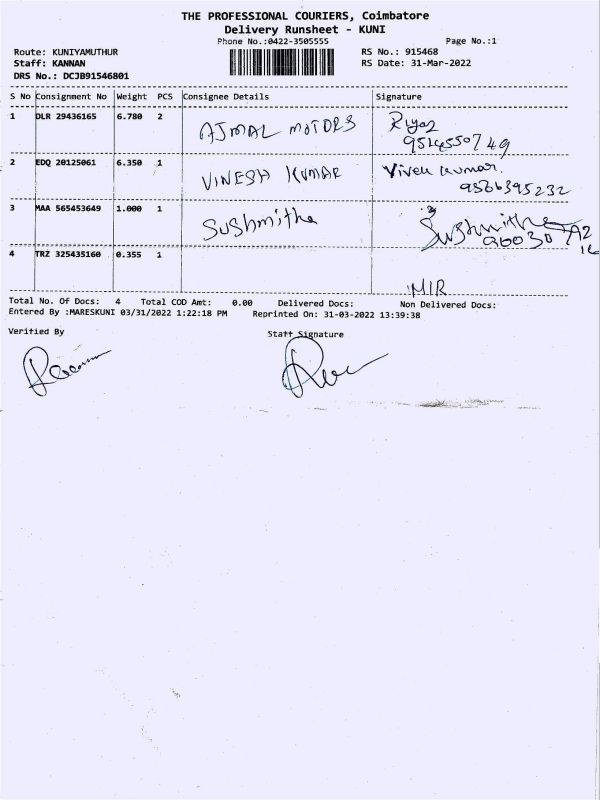 THE PROFESSIONAL COURIERS, Coimbatore
Delivery Runsheet - KUNI
Phone No.:0422-3505555
Page No.:1
Route: KUNIYAMUTHUR
RS No.: 915468
Staff: KANNAN
RS Date: 31-Mar-2022
DRS No.: DCJB91546801
S No Consignment No Weight PCS Consignee Details Signature
1 DLR 29436165 6.780 2 AJMAL MOTORS Riyaz
9514550749
2 EDQ 20125061 6.350 1 VINESH KUMAR Vivek kumar.
9566395232
3 MAA 565453649 1.000 1 Sushmitha Sushmitha
96030
4 TRZ 325435160 0.355 1
MIR
Total No. Of Docs: 4 Total COD Amt: 0.00 Delivered Docs: Non Delivered Docs:
Entered By :MARESKUNI 03/31/2022 1:22:18 PM Reprinted On: 31-03-2022 13:39:38
Verified By Staff Signature